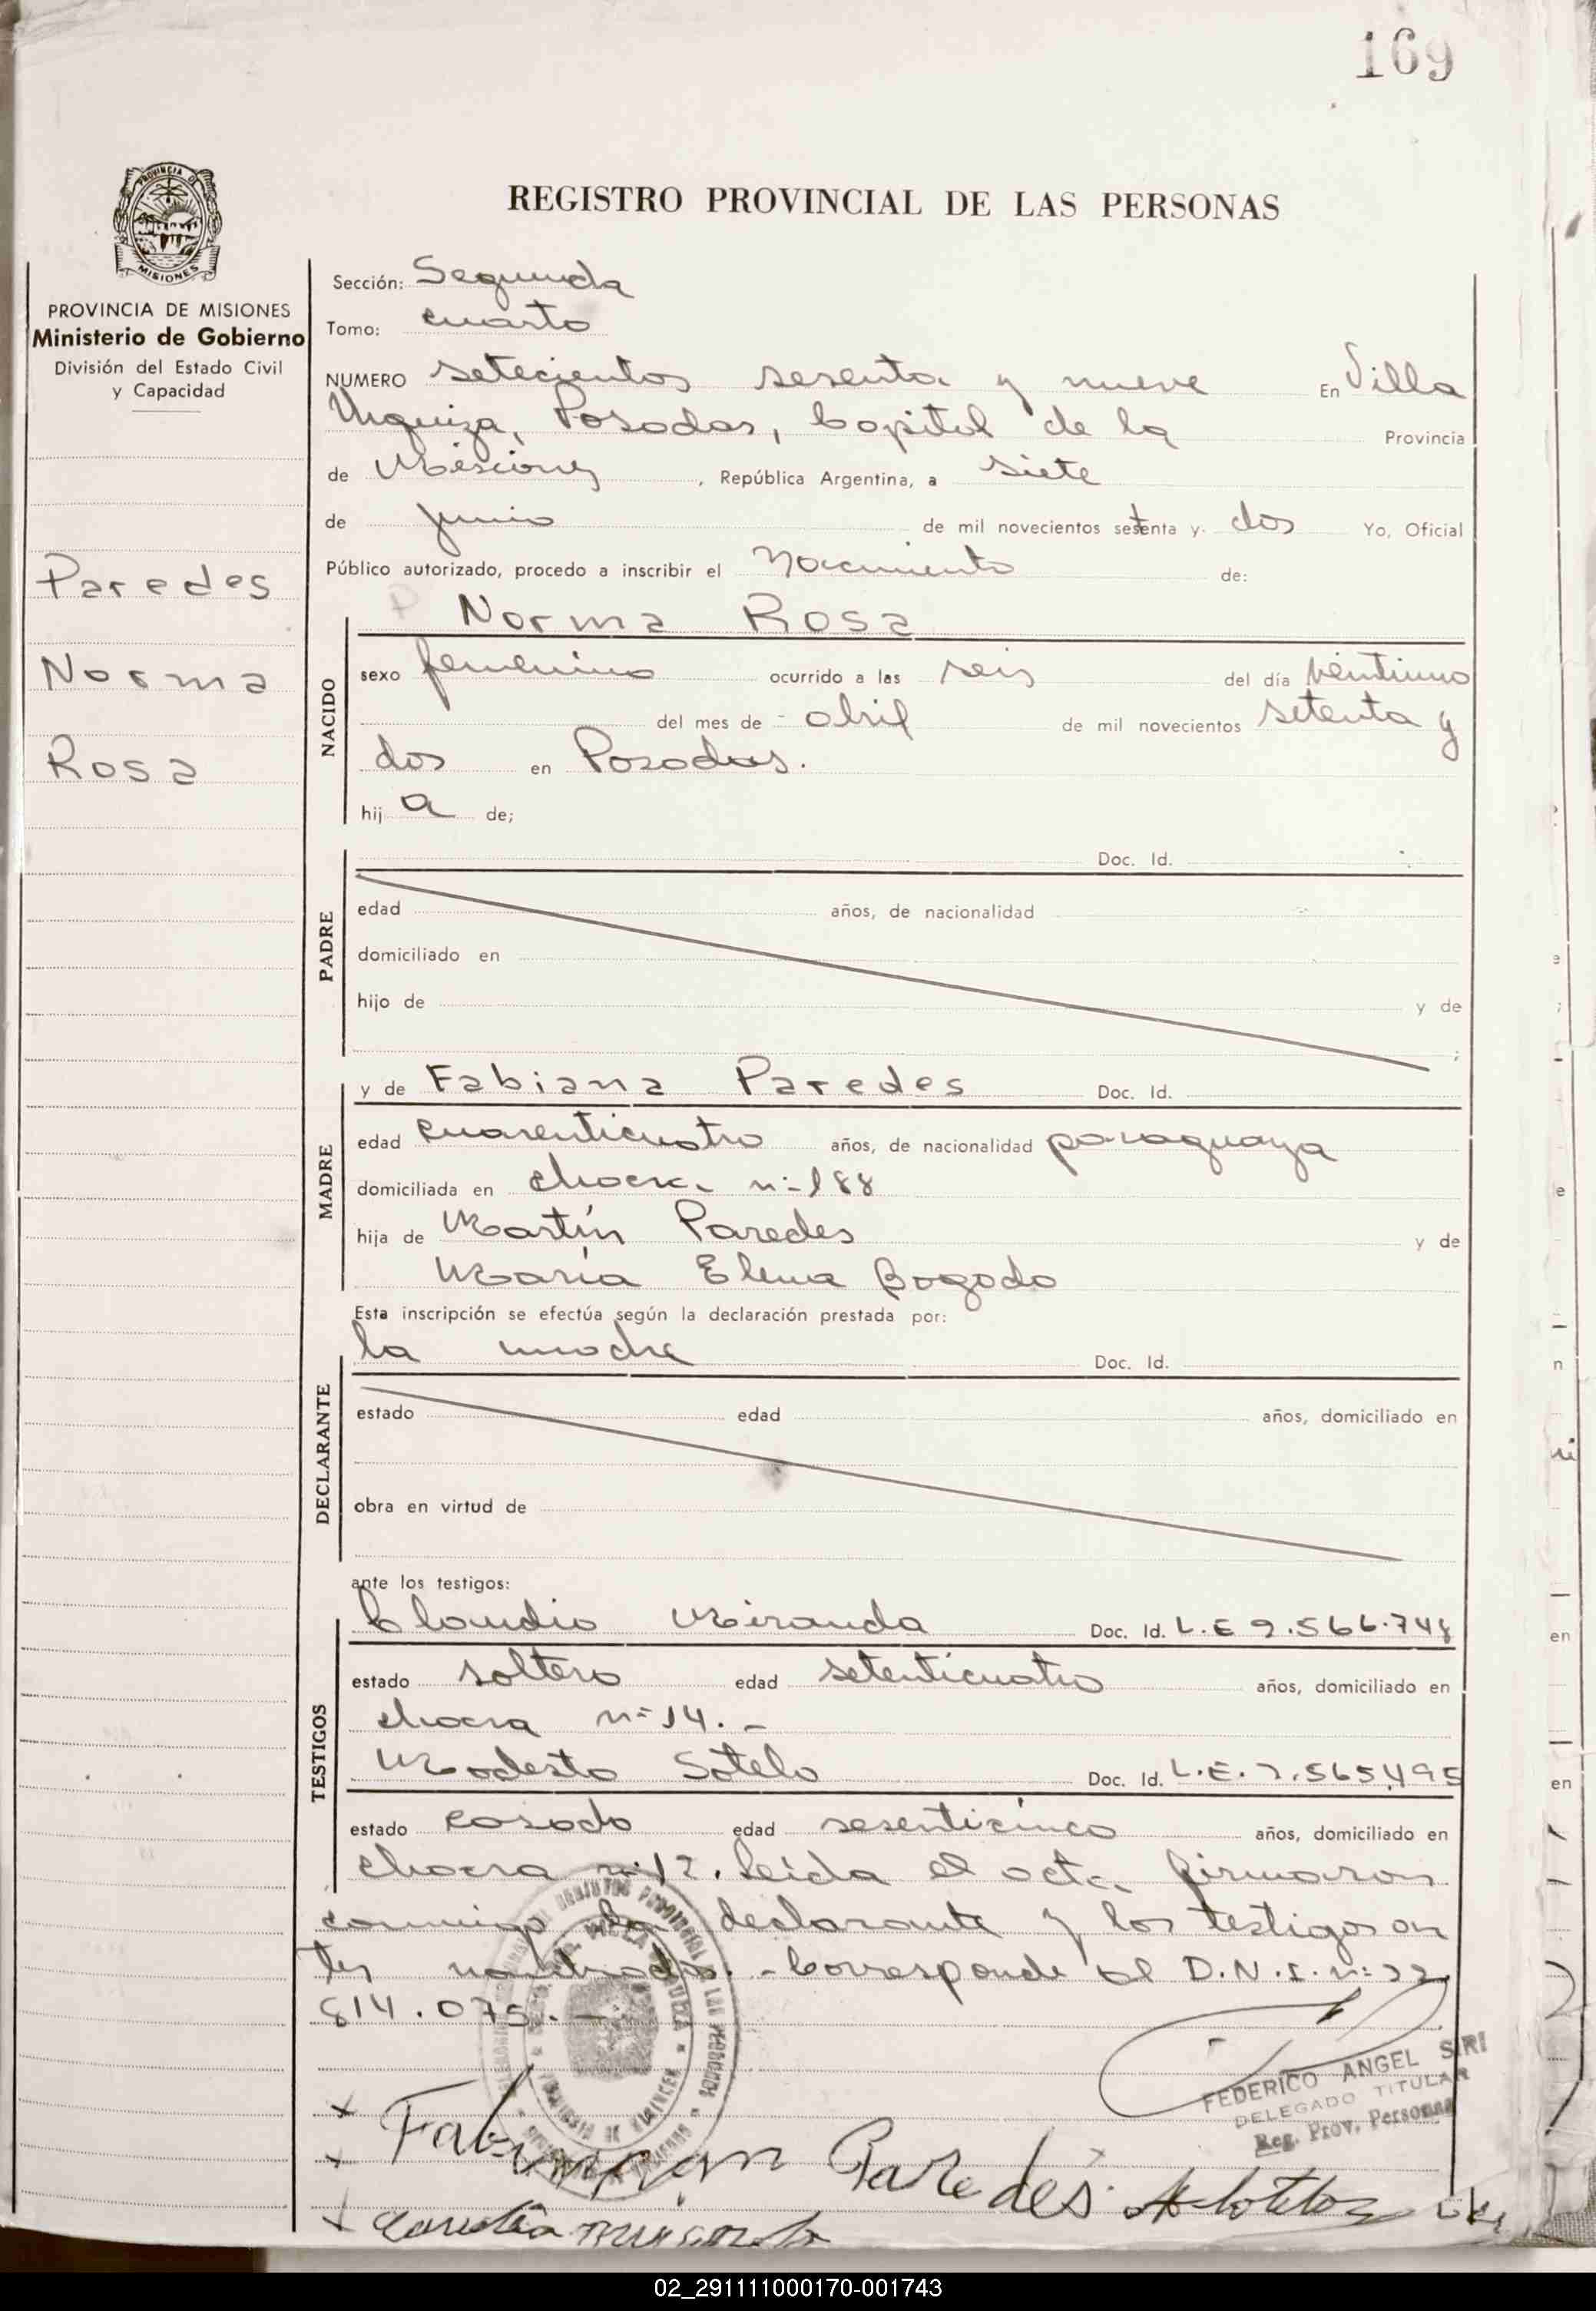 169
REGISTRO PROVINCIAL DE LAS PERSONAS
PROVINCIA DE MISIONES
Ministerio de Gobierno
División del Estado Civil
y Capacidad
Paredes
Norma
Rosa
Sección: Segunda
Tomo: cuarto
NUMERO setecientos sesenta y nueve En Villa
Urquiza, Posadas, Capital de la Provincia
de Misiones, República Argentina, a siete
de junio de mil novecientos setenta y dos Yo, Oficial
Público autorizado, procedo a inscribir el nacimiento de:
Norma Rosa
NACIDO
sexo femenino ocurrido a las seis del día veintiuno
del mes de abril de mil novecientos setenta y
dos en Posadas.
hij a de;
PADRE
Doc. Id.
edad años, de nacionalidad
domiciliado en
hijo de y de
;
MADRE
y de Fabiana Paredes Doc. Id.
edad cuarenticuatro años, de nacionalidad paraguaya
domiciliada en chacra n:188
hija de Martín Paredes y de
María Elena Bogado
Esta inscripción se efectúa según la declaración prestada por:
la madre Doc. Id.
DECLARANTE
estado edad años, domiciliado en
obra en virtud de
ante los testigos:
TESTIGOS
Claudio Miranda Doc. Id. L.E 9.566.748
estado soltero edad setenticuatro años, domiciliado en
chacra n:14.-
Modesto Sotelo Doc. Id. L.E. 7.565,495
estado casado edad sesenticinco años, domiciliado en
chacra n:12. Leída el acta firmaron
conmigo la declarante y los testigos an
tes nombrados.-Corresponde al D.N.I. n: 22
814.075.-
FEDERICO ANGEL SIRI
DELEGADO TITULAR
Reg. Prov. Personas
Paredes
02_291111000170-001743